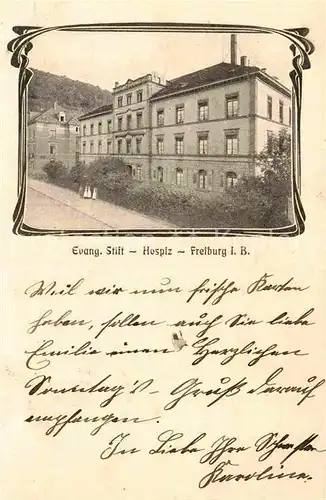 Evang. Stift – Hospiz – Freiburg i. B.
Weil wir nun frische Karten
haben, sollen auch Sie liebe
Emilie einen Herzlichen
Sonntag's-Gruß darauf
empfangen.
In Liebe Ihre
Karoline.